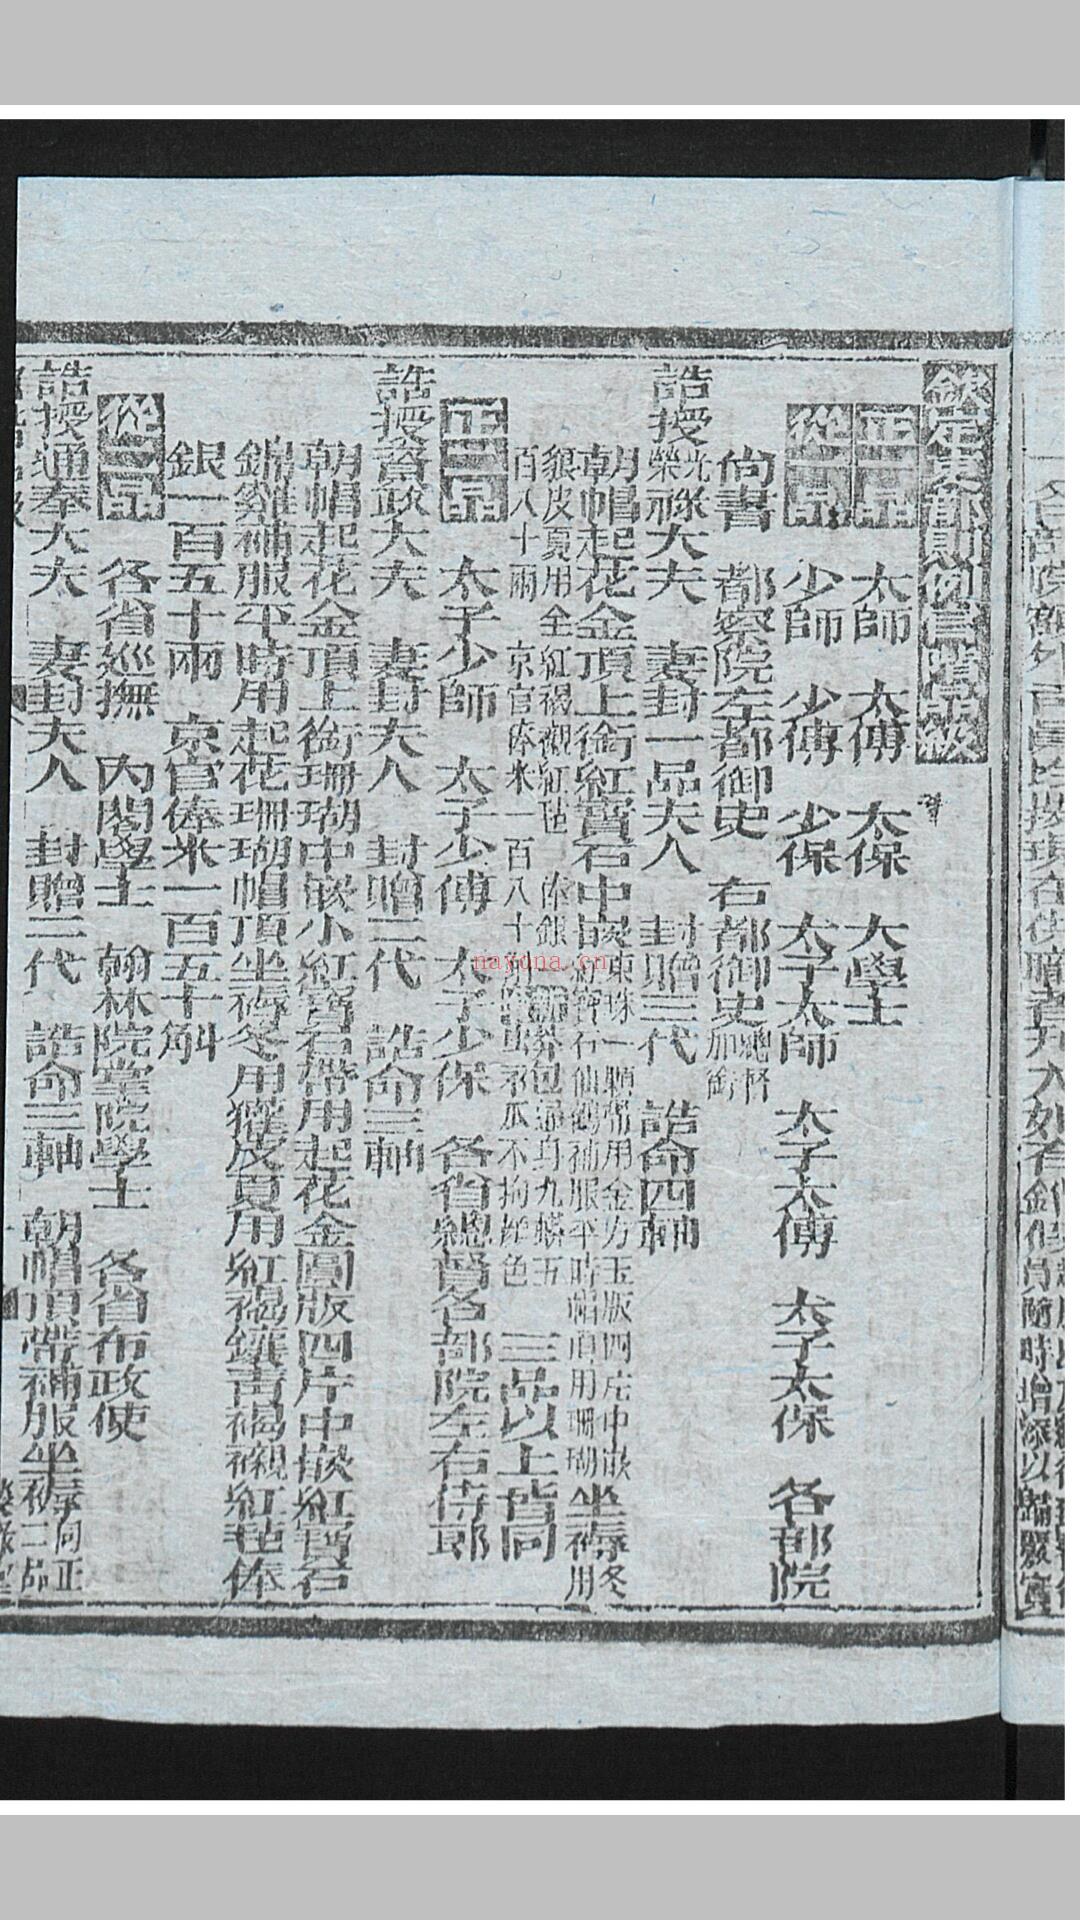 欽定吏部則例官階品級
正一品 太師 太傅 太保 大學士
從一品 少師 少傅 少保 太子太師 太子太傅 太子太保 各部院
尚書 都察院左都御史 右都御史總督加銜
誥授光祿榮祿大夫 妻封一品夫人 封贈三代 誥命四軸
朝帽起花金頂上銜紅寶石中嵌東珠一顆帶用金方玉版四片中嵌
紅寶石仙鶴補服平時帽頂用珊瑚坐褥冬用
狼皮夏用全紅褐襯紅毡 俸銀一百八十兩 京官俸米一百八十斛
蟒袍通身九蟒五爪不拘顏色 三品以上皆同
正二品 太子少師 太子少傅 太子少保 各省總督各部院左右侍郎
誥授資政大夫 妻封夫人 封贈二代 誥命三軸
朝帽起花金頂上銜珊瑚中嵌小紅寶石帶用起花金圓版四片中嵌紅寶石
錦雞補服平時用起花珊瑚帽頂坐褥冬用獾皮夏用紅褐鑲青褐襯紅毡俸
銀一百五十兩 京官俸米一百五十斛
從二品 各省巡撫 內閣學士 翰林院掌院學士 各省布政使
誥授通奉大夫 妻封夫人 封贈二代 誥命三軸 朝帽頂帶補服坐褥同正二品
nayona.cn